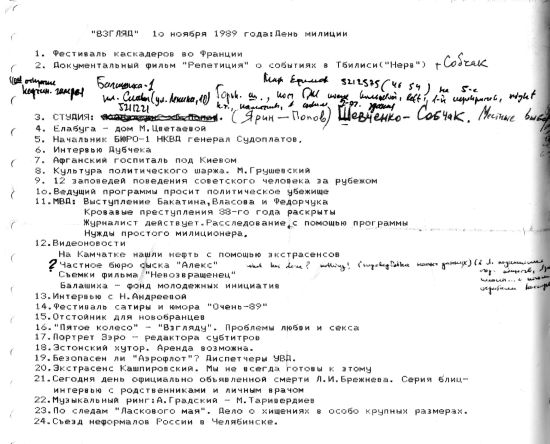 "ВЗГЛЯД" 1о ноября 1989 года:День милиции
1. Фестиваль каскадеров во Франции
2. Документальный фильм "Репетиция" о событиях в Тбилиси("Нерв") + Собчак
Балашиха-1
3. СТУДИЯ: (Ярин—Попов) Шевченко—Собчак. Местные выбо
4. Елабуга - дом М.Цветаевой
5. Начальник БЮРО-1 НКВД генерал Судоплатов.
6. Интервью Дубчека
7. Афганский госпиталь под Киевом
8. Культура политического шаржа. М.Грушевский
9. 12 заповедей поведения советского человека за рубежом
1о.Ведущий программы просит политическое убежище
11.МВД: Выступление Бакатина,Власова и Федорчука
Кровавые преступления 88-го года раскрыты
Журналист действует.Расследование с помощью программы
Нужды простого милиционера.
12.Видеоновости
На Камчатке нашли нефть с помощью экстрасенсов
? Частное бюро сыска "Алекс"
Съемки фильма "Невозвращенец"
Балашиха - фонд молодежных инициатив
13.Интервью с Н.Андреевой
14.Фестиваль сатиры и юмора "Очень-89"
15.Отстойник для новобранцев
16."Пятое колесо" - "Взгляду". Проблемы любви и секса
17.Портрет Зэро - редактора субтитров
18.Эстонский хутор. Аренда возможна.
19.Безопасен ли "Аэрофлот"? Диспетчеры УВД.
20.Экстрасенс Кашпировский. Мы не всегда готовы к этому
21.Сегодня день официально объявленной смерти Л.И.Брежнева. Серия блиц-
интервью с родственниками и личным врачом
22.Музыкальный ринг:А.Градский - М.Таривердиев
23.По следам "Ласкового мая". Дело о хищениях в особо крупных размерах.
24.Съезд неформалов России в Челябинске.